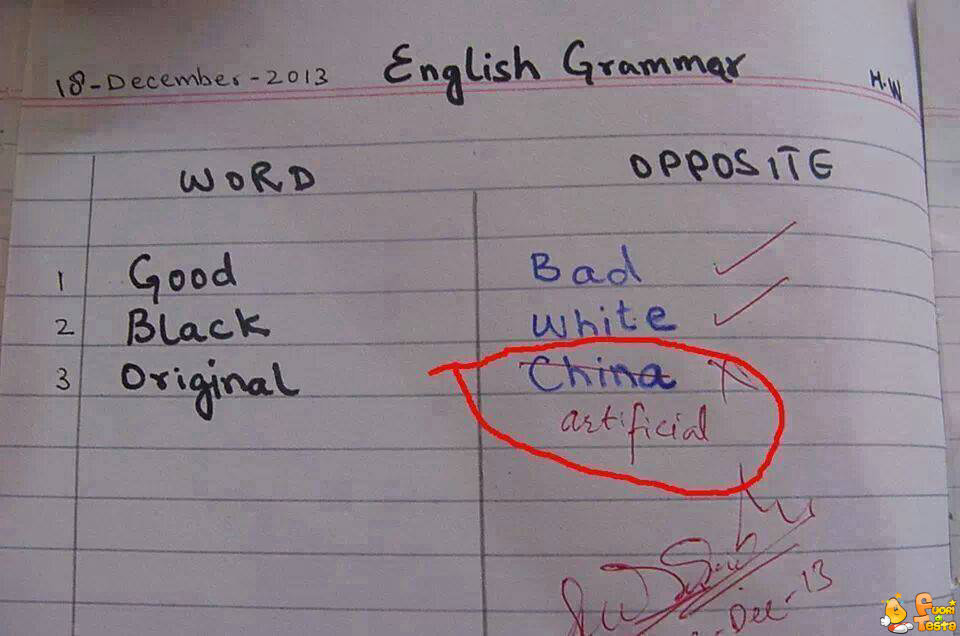 18-December-2013 English Grammar H.W
WORD OPPOSITE
1 Good Bad
2 Black White
3 Original China
artificial
Dec-13
Fuori
di
Testa